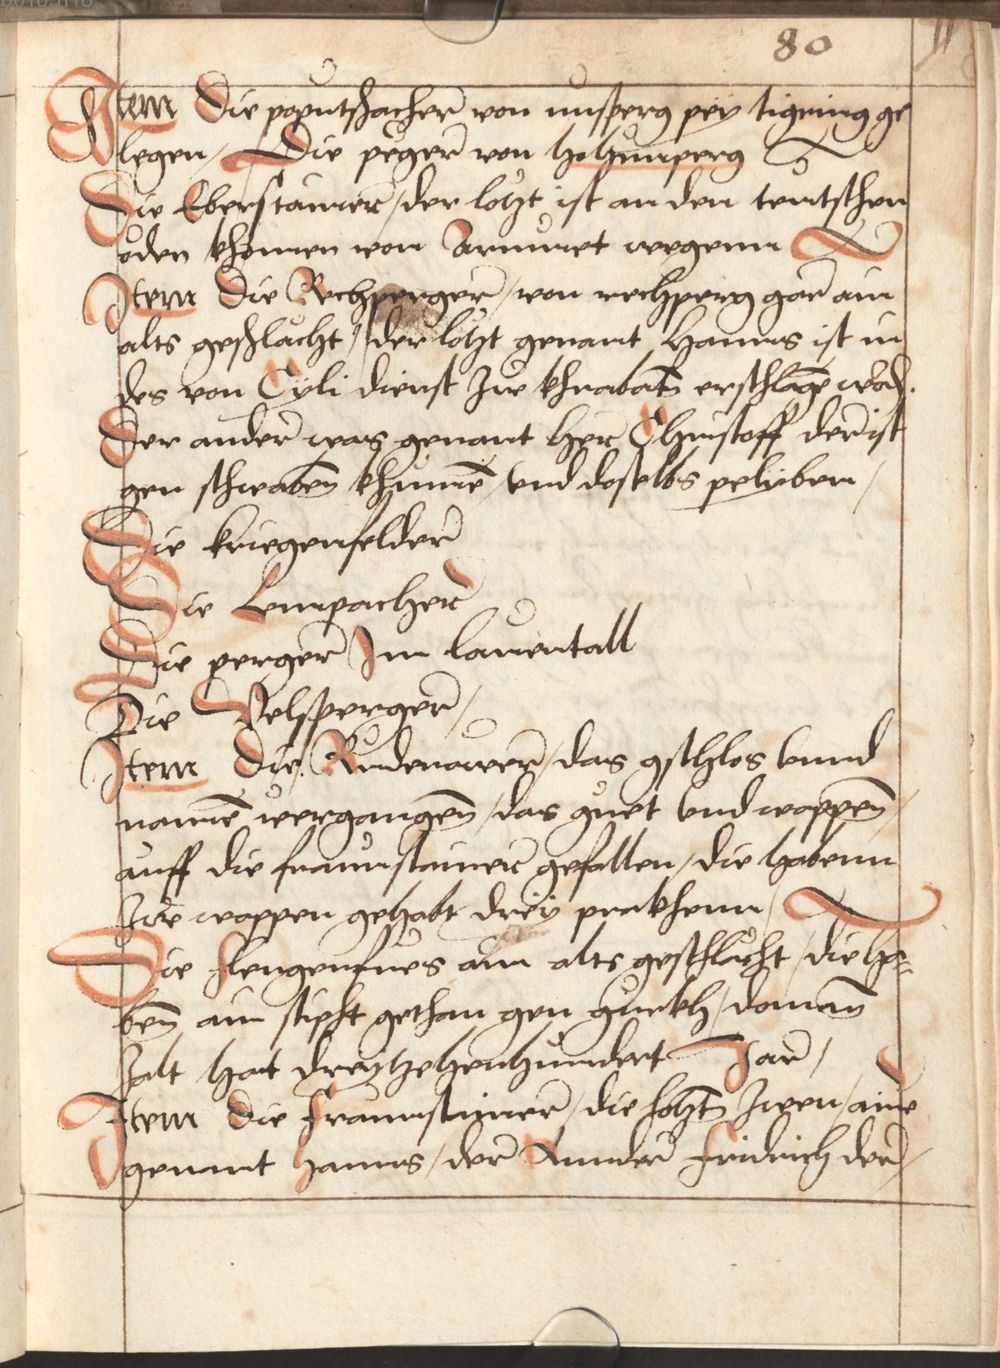 80
Item Die poputschacher von nusperg pey tigring ge
legen / Die peger von hohumperg
Die Eberstainer / der letzt ist an den teutschen
orden khomen von Armuet wegenn
Item Die Rechperger / von rechperg gar ain
alts geschlacht / der letzt genant Hanns ist in
des von Cyli dienst Jn khrabatn erschlagē word.
Der ander was genant Her Christoff der ist
gen schwaben khumē vnd doselbs pelyben /
Die kriegenfelder
Die Lempacher
Die perger Jm lauentall
Die Velsperger /
Item Die Rudenawer / das gschlos vnnd
namē vergangen / das guet vnd wappen /
auff die fraunstainer gefallen / die habenn
Jre wappen gehabt drey prakhenn
Die flengenfues ain alts geschlacht / die ha=
ben ain stipht gethan gen gurkh / do man
zalt hat dreyzehenhundert Jar /
Item Die fraunstainer / die letztn zwen / ainer
genant Hanns / der Annder fridrich der /